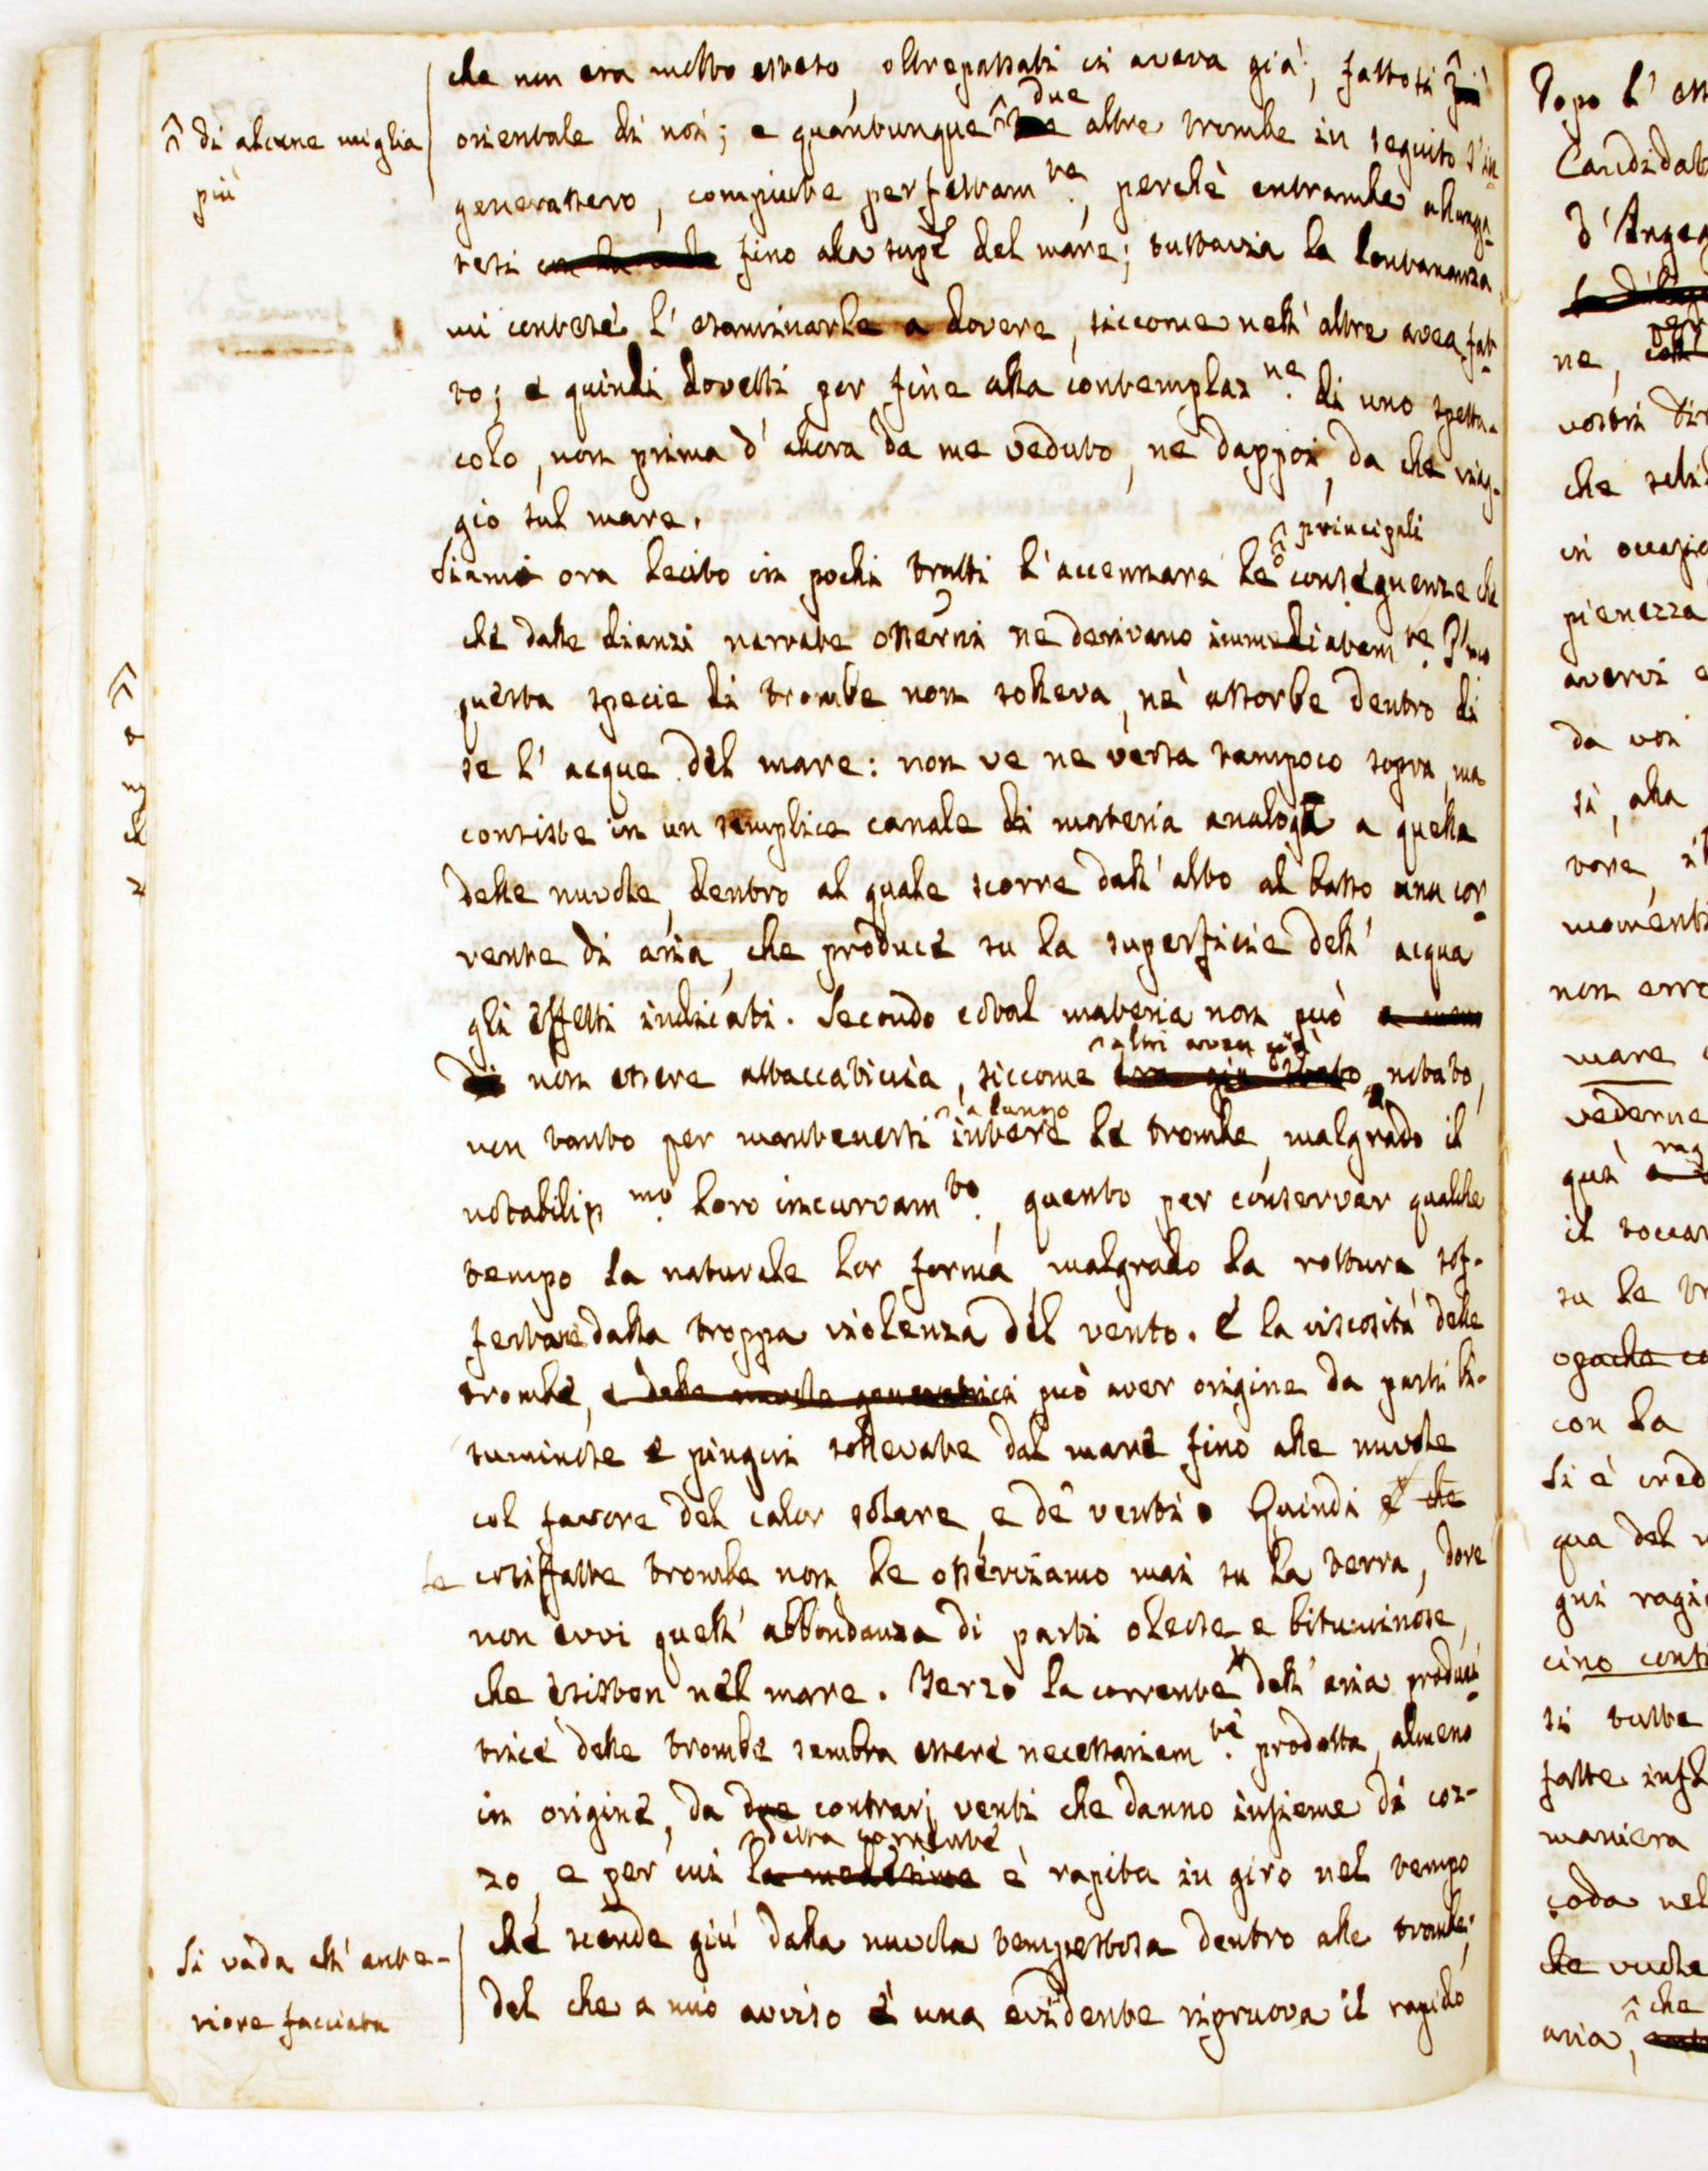 che non era molto esteso, oltrepassati ci aveva già, fattosi ^ più
^ di alcune miglia
più
orientale di noi; e quantunque ^ due tre altre trombe in seguito s'in
generassero, compiute perfettam.te, perchè entrambe allunga
tesi fino alla supe. del mare; tuttavia la lontananza
mi contese l'esaminarle a dovere, siccome nell'altre avea fat
to; e quindi dovetti por fine alla contemplaz.ne di uno spetta-
colo, non prima d'allora da me veduto, ne dappoi, da che viag-
gio sul mare.
^ principali
Siami ora lecito in pochi tratti l'accennare le conseguenze che
che dalle dianzi narrate osservni ne derivano immediatam.te P.mo
questa specie di trombe non solleva, nè assorbe dentro di
se l'acque del mare: non ve ne versa tampoco sopra, ma
consiste in un semplice canale di materia analoga a quella
delle nuvole, dentro al quale scorre dall'alto al basso una cor
rente di aria, che produce su la superficie dell'acqua
gli effetti indicati. Secondo cotal materia non può
^ altri avean già
non essere attaccaticcia, siccome era già stato notato,
^ a lungo
non tanto per mantenersi intere le trombe, malgrado il
notabiliss.mo loro incurvam.to, quanto per conservar qualche
tempo la naturale lor forma, malgrado la rottura sof-
ferta dalla troppa violenza del vento. E la viscosità delle
trombe, e delle nuvole generatrici può aver origine da parti bi-
tuminose e pingui sollevate dal mare fino alle nuvole
col favore del calor solare, e de' venti. Quindi è che
le cosiffatte trombe non le osserviamo mai su la terra, dove
non evvi quell'abbondanza di parti oleose e bituminose,
che esiston nel mare. Terzo la corrente dell'aria produt
trice delle trombe sembra essere necessariam.te prodotta, almeno
in origine, da due contrarj venti che danno insieme di coz-
detta corrente
zo, e per cui la medesima è rapita in giro nel tempo
che scende giù dalla nuvola tempestosa dentro alle trombe;
Si vada all'ante-
riore facciata
del che a mio avviso è una evidente ripruova il rapido
Dopo l'
Candidat
ne,
vostri
che
in occasio
pienezza
avervi e
da voi
sì, alla
momenti
non erro
mare
vederne
quì
il toccar
su le tr
opache co
con la
Si è cred
qua del
gui ragio
cino conti
si tutte
fatte infl
maniera
coda nel
che vuole
^ che
aria,